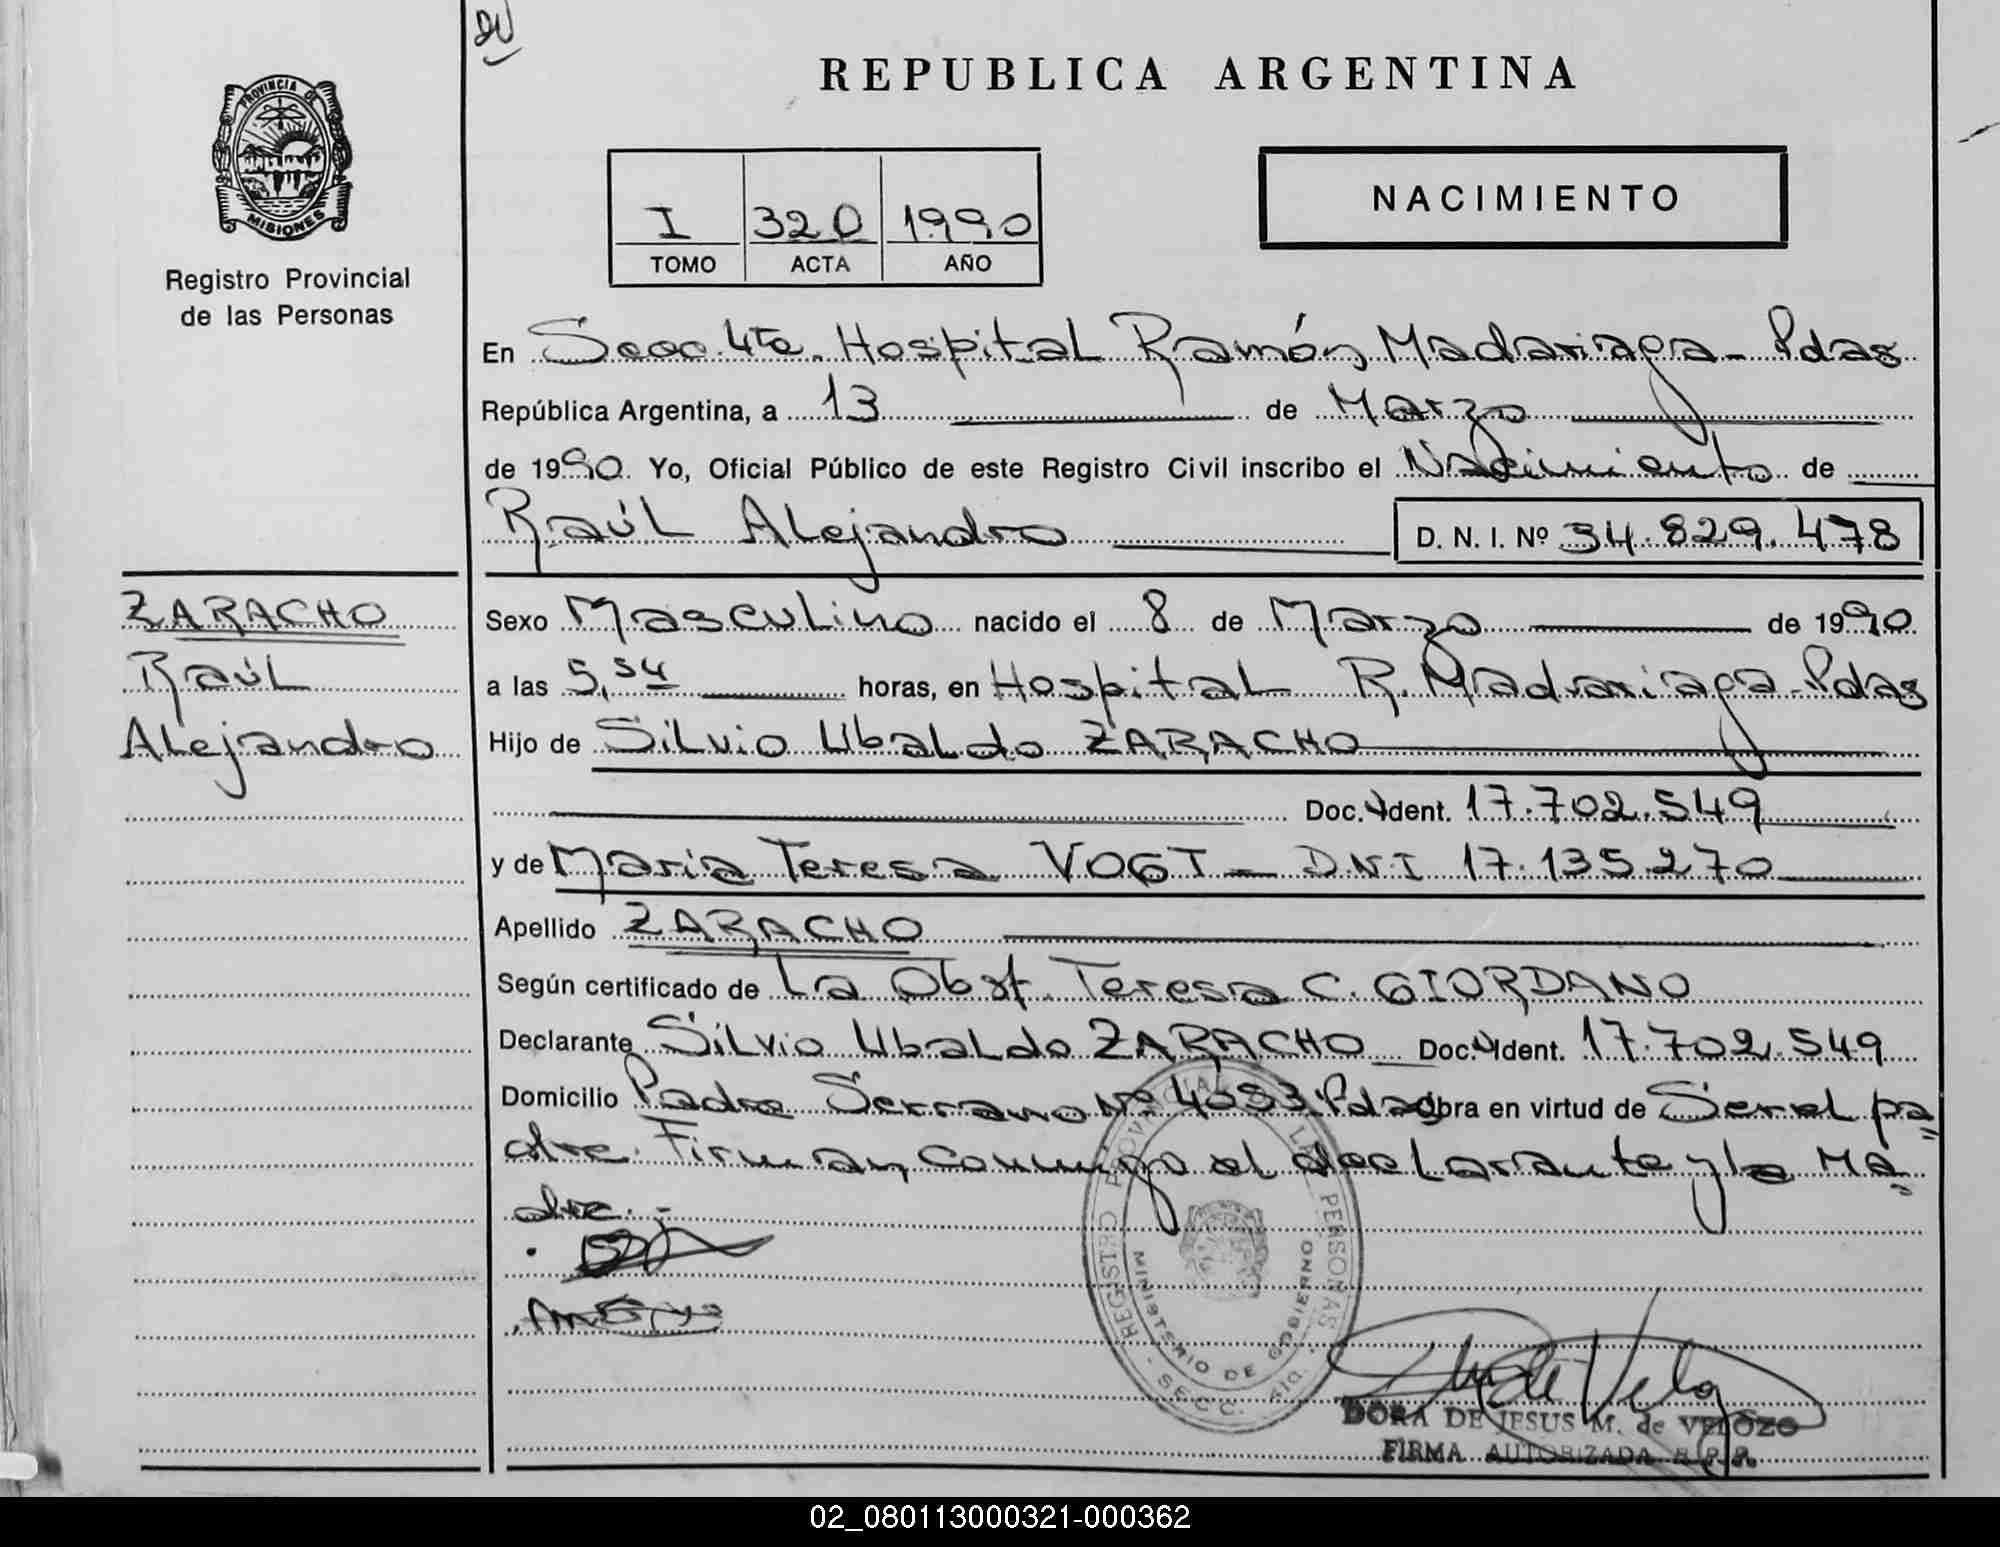 PROVINCIA DE
MISIONES
Registro Provincial
de las Personas
REPUBLICA ARGENTINA
I 320 1990
TOMO ACTA AÑO
NACIMIENTO
En Secc. 4ta. Hospital Ramón Madariaga - Pdas
República Argentina, a 13 de Marzo
de 1990. Yo, Oficial Público de este Registro Civil inscribo el Nacimiento de
Raúl Alejandro D. N. I. Nº 34.829.478
ZARACHO
Raúl
Alejandro
Sexo Masculino nacido el 8 de Marzo de 1990
a las 5,54 horas, en Hospital R. Madariaga - Pdas
Hijo de Silvio Ubaldo ZARACHO
Doc. Ident. 17.702.549
y de María Teresa VOGT - DNI 17.135.270
Apellido ZARACHO
Según certificado de La Obst. Teresa C. GIORDANO
Declarante Silvio Ubaldo ZARACHO Doc. Ident. 17.702.549
Domicilio Padre Serrano Nº 4053 Pdas Obra en virtud de Ser el pa=
dre. Firman conmigo el declarante y la Ma=
dre.-
REGISTRO PROVINCIAL DE LAS PERSONAS
MINISTERIO DE GOBIERNO
DORA DE JESUS M. de VELOZO
FIRMA AUTORIZADA R.P.P.
02_080113000321-000362